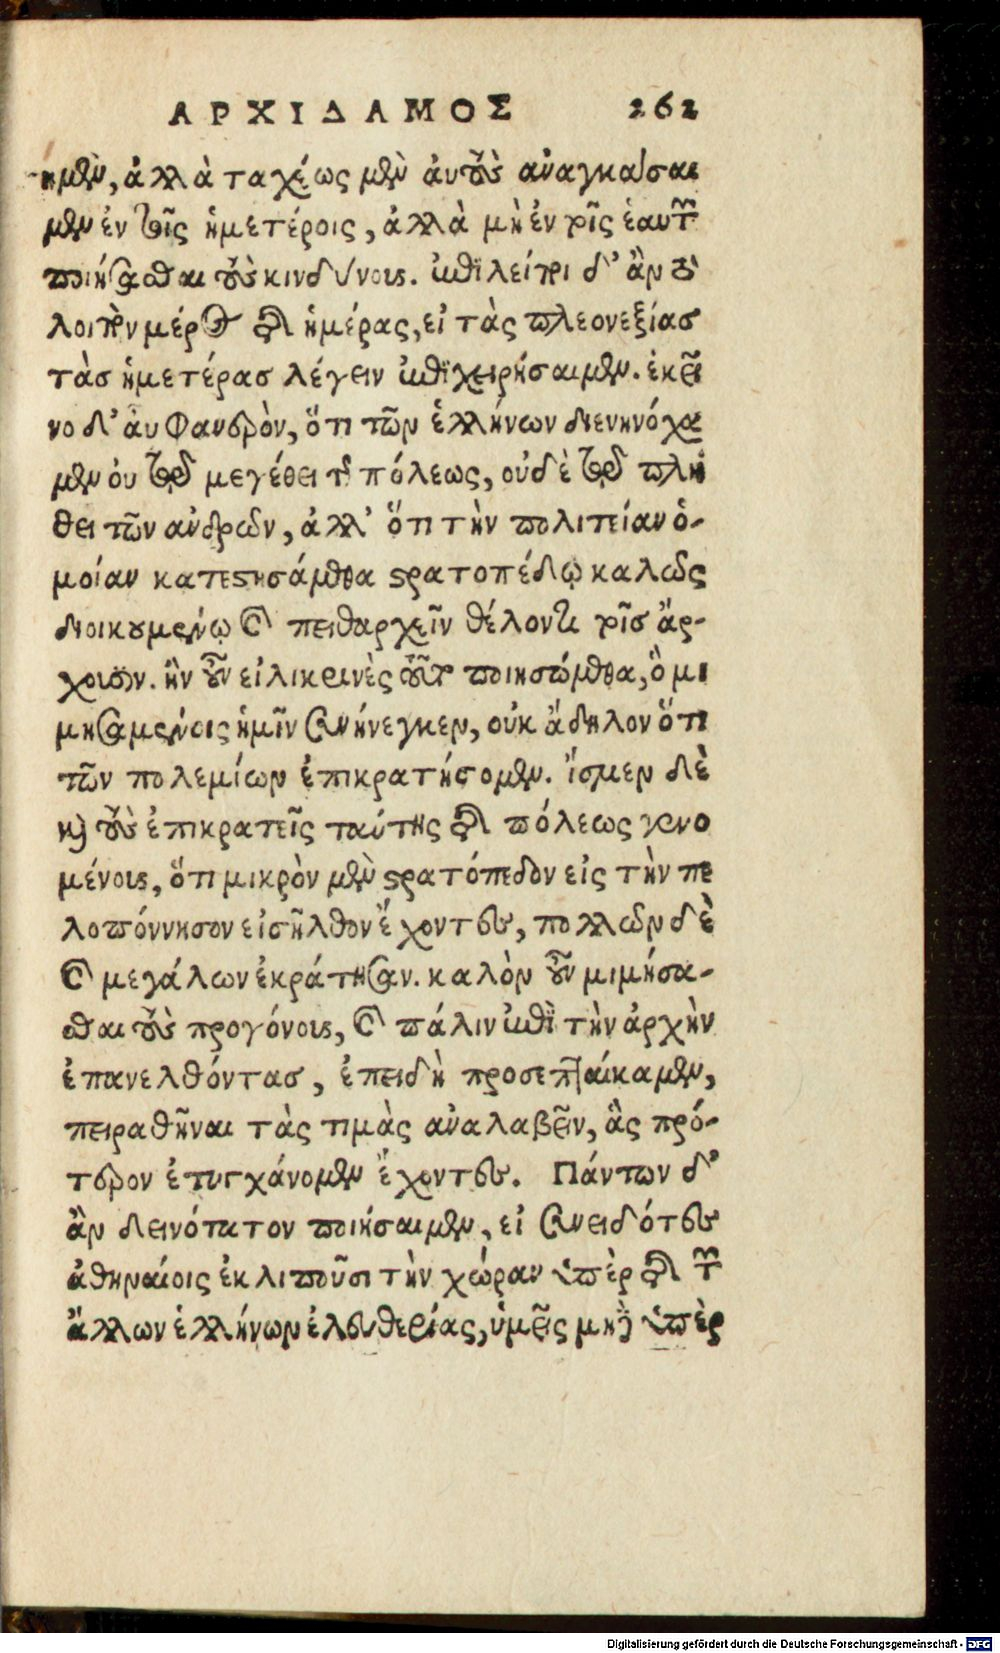 ΑΡΧΙΔΑΜΟΣ 262
ημῶν, ἀλλὰ ταχέως μὲν ἀυτοὺς ἀναγκάσαι
μεν ἐν τοῖς ἡμετέροις, ἀλλὰ μὴ ἐν τοῖς ἑαυτῶν
ποιήσασθαι τοὺς κινδύνους. ἐπιλείποι δ' ἂν τὸ
λοιπὸν μέρος τῆς ἡμέρας, εἰ τὰς πλεονεξίασ
τὰσ ἡμετέρασ λέγειν ἐπιχειρήσαιμεν. ἐκεῖ
νο δ' ἀυ φανερὸν, ὅτι τῶν ἑλλήνων διενηνόχα
μεν ὀυ τῷ μεγέθει τῆς πόλεως, οὐδὲ τῷ πλή
θει τῶν ανδρῶν, ἀλλ' ὅτι τὴν πολιτείαν ὁ-
μοίαν κατεστησάμεθα στρατοπέδῳ καλῶς
διοικουμένῳ καὶ πειθαρχεῖν θέλοντι τοῖσ ἄρ-
χουσιν. ἢν οὖν εἰλικρινὲς τοῦτο ποιησώμεθα, ὃ μι
μησαμένοις ἡμῖν συνήνεγκεν, οὐκ ἄδηλον ὅτι
τῶν πολεμίων ἐπικρατήσομεν. ἴσμεν δὲ
καὶ τοὺς ἐπικρατεῖς ταύτης τῆς πόλεως γενο
μένους, ὅτι μικρὸν μὲν στρατόπεδον εἰς τὴν πε
λοπόννησον εἰσῆλθον ἔχοντες, πολλῶν δὲ
καὶ μεγάλων ἐκράτησαν. καλὸν οὖν μιμήσα-
σθαι τοὺς προγόνους, καὶ πάλιν ἐπὶ τὴν ἀρχὴν
ἐπανελθόντασ, ἐπειδὴ προσεπταίκαμεν,
πειραθῆναι τὰς τιμὰς ἀναλαβεῖν, ἃς πρό-
τερον ἐτυγχάνομεν ἔχοντες. Πάντων δ'
ἂν δεινότατον ποιήσαιμεν, εἰ συνειδότες
ἀθηναίοις ἐκλιποῦσι τὴν χώραν ὑπὲρ τῆς τῶν
ἄλλων ἑλλήνων ἐλευθερίας, ὑμεῖς μηδ' ὑπὲρ
Digitalisierung gefördert durch die Deutsche Forschungsgemeinschaft - DFG